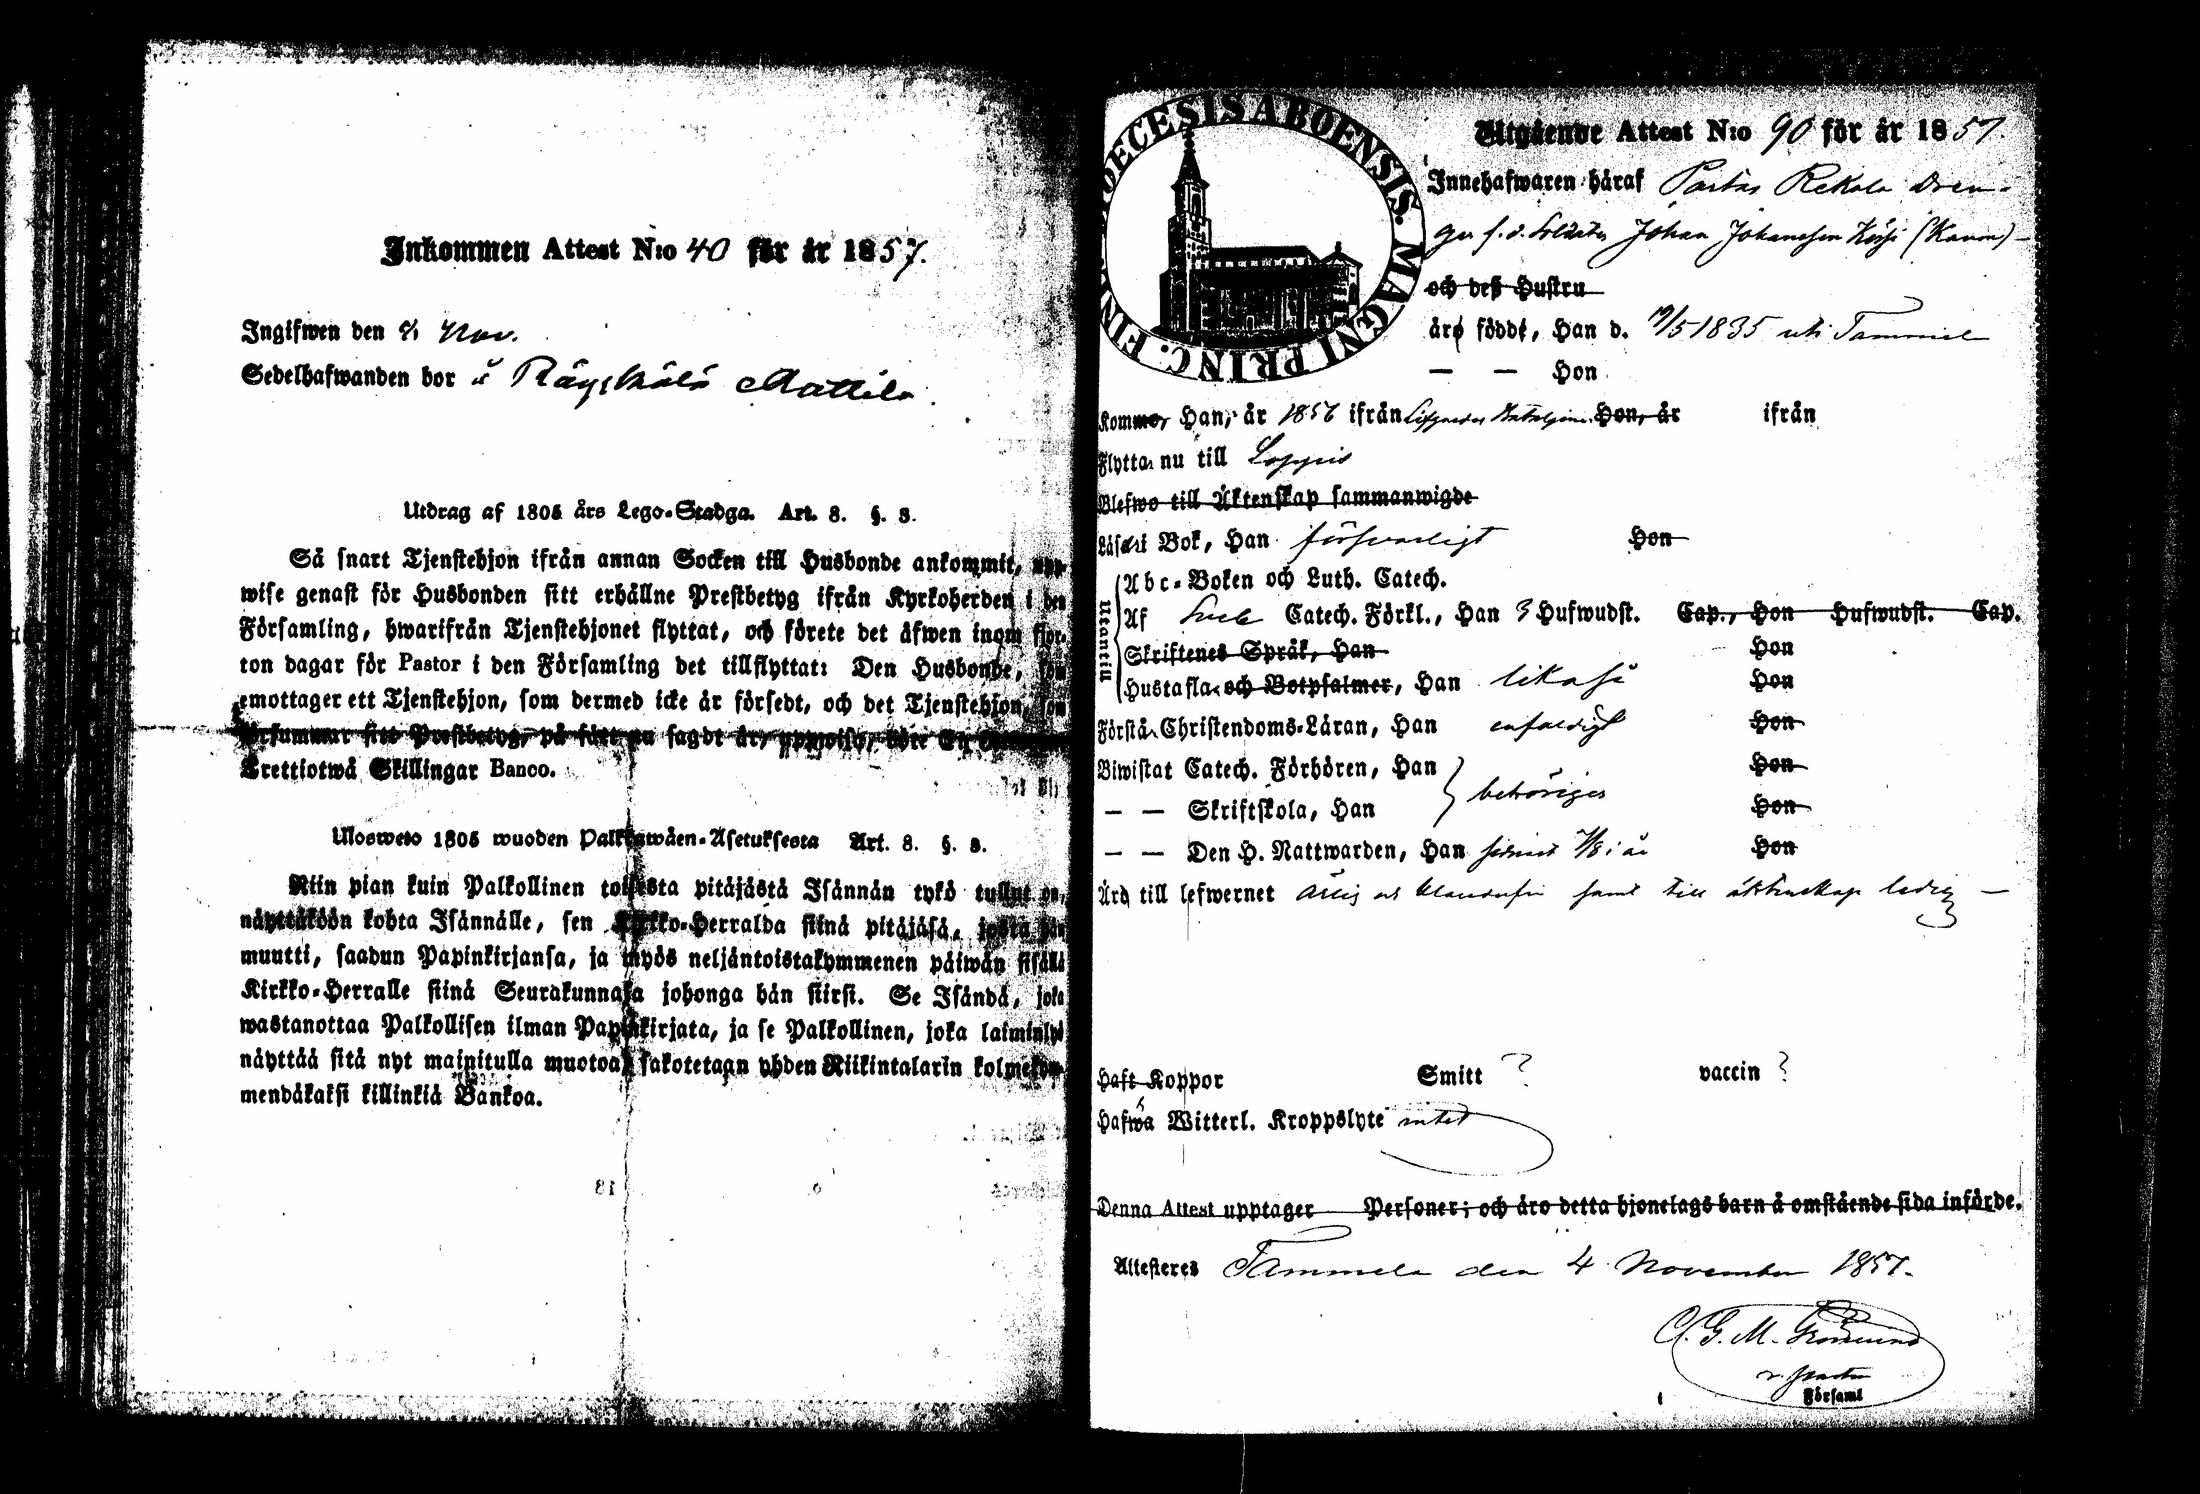 Inkommen Attest N:o 40 för år 1857.
Ingifwen den 6/11 Nov.
Sedelhafwanden bor å Räyskälä Mattila
Utdrag af 1805 års Lego-Stadga. Art. 8. §. 3.
Så snart Tjenstehjon ifrån annan Socken till Husbonde ankommit, upp-
wise genast för Husbonden sitt erhållne Prestbetyg ifrån Kyrkoherden i den
Församling, hwarifrån Tjenstehjonet flyttat, och förete det äfwen inom fjor-
ton dagar för Pastor i den Församling det tillflyttat: Den Husbonde, som
emottager ett Tjenstehjon, som dermed icke är försedt, och det Tjenstehjon, som
försummar sitt Prestbetyg, på sätt nu sagdt är, uppwisa, böte En
Trettiotwå Skillingar Banco.
Ulosweto 1805 wuoden Palkkawäen-Asetuksesta Art. 8. §. 3.
Niin pian kuin Palkollinen toisesta pitäjästä Isännän tykö tullut on,
näyttäköön kohta Isännälle, sen Kirkko-Herralda siinä pitäjäsä, josta hän
muutti, saadun Papinkirjansa, ja myös neljäntoistakymmenen päiwän sisällä
Kirkko-Herralle siinä Seurakunnasa johonga hän siirsi. Se Isändä, joka
wastanottaa Palkollisen ilman Papinkirjata, ja se Palkollinen, joka laiminlyö
näyttää sitä nyt mainitulla muotoa, sakotetaan yhden Riikintalarin kolmekym-
mendäkaksi killinkiä Bankoa.
FINL. DIOECESIS ABOENSIS. MAGNI PRINC.
Utgående Attest N:o 90 för år 1857.
Innehafwaren häraf Portas Rekola Dren-
ger f.d. Soldaten Johan Johansson (Kanon)
och deß Hustru
äro födde, Han d. 19/5 1835 uti Tammela
— — Hon
Kommo, Han, år 1856 ifrån Hon, år ifrån
Flytta nu till Loppis
Blefwo till Äktenskap sammanwigde
Läsa i Bok, Han försvarligt Hon
Utantill
Abc-Boken och Luth. Catech.
Af Catech. Förkl., Han 3 Hufwudst. Cap., Hon Hufwudst. Cap.
Skriftenes Språk, Han Hon
Hustafla och Botpsalmer, Han likaså Hon
Förstå Christendoms-Läran, Han enfaldigt Hon
Biwistat Catech. Förhören, Han behörigen Hon
— — Skriftskola, Han Hon
— — Den H. Nattwarden, Han sednast i år Hon
Äro till lefwernet ärlig och samt till äktenskap ledig —
Haft Koppor Smitt ? vaccin ?
Hafwa Witterl. Kroppslyte intet
Denna Attest upptager Personer; och äro detta hjonelags barn å omstående sida införde.
Attesteres Tammela den 4 November 1857.
C. G. M. Grönlund
v. pastor
Församl